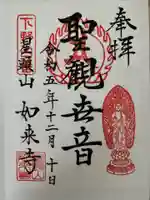 奉拝
聖觀世音
令和五年十二月十日
下野
星顕山 如来寺